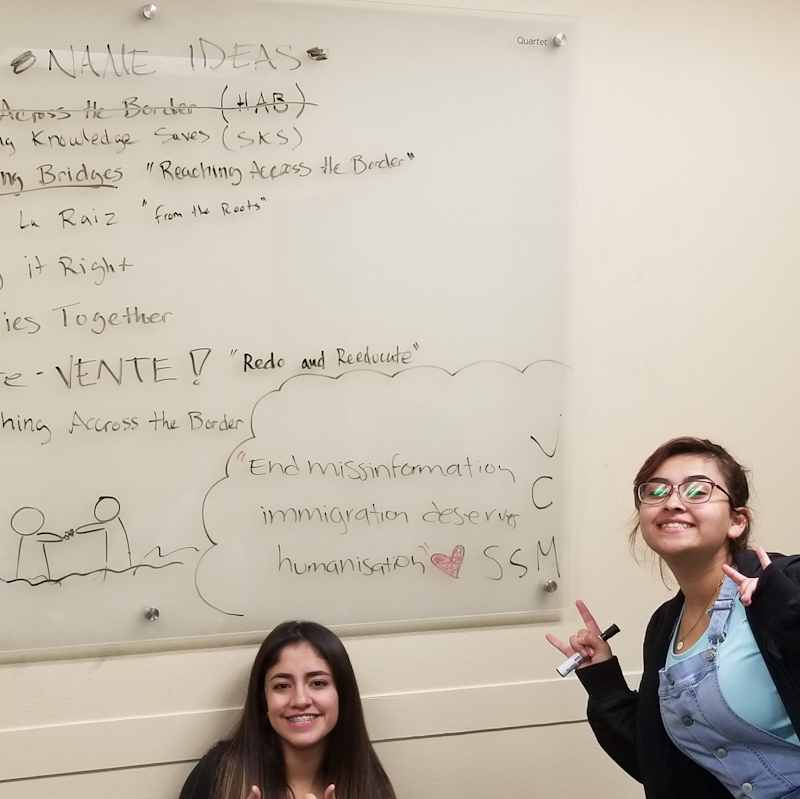 NAME IDEAS
Quartet
Across the Border (HAB)
ng Knowledge Saves (SKS)
ng Bridges "Reaching Across the Border"
La Raiz "from the Roots"
it Right
ies Together
e-VENTE! "Redo and Reeducate"
hing Accross the Border
"End missinformation
immigration deserves
humanisation"
V
C
SSM